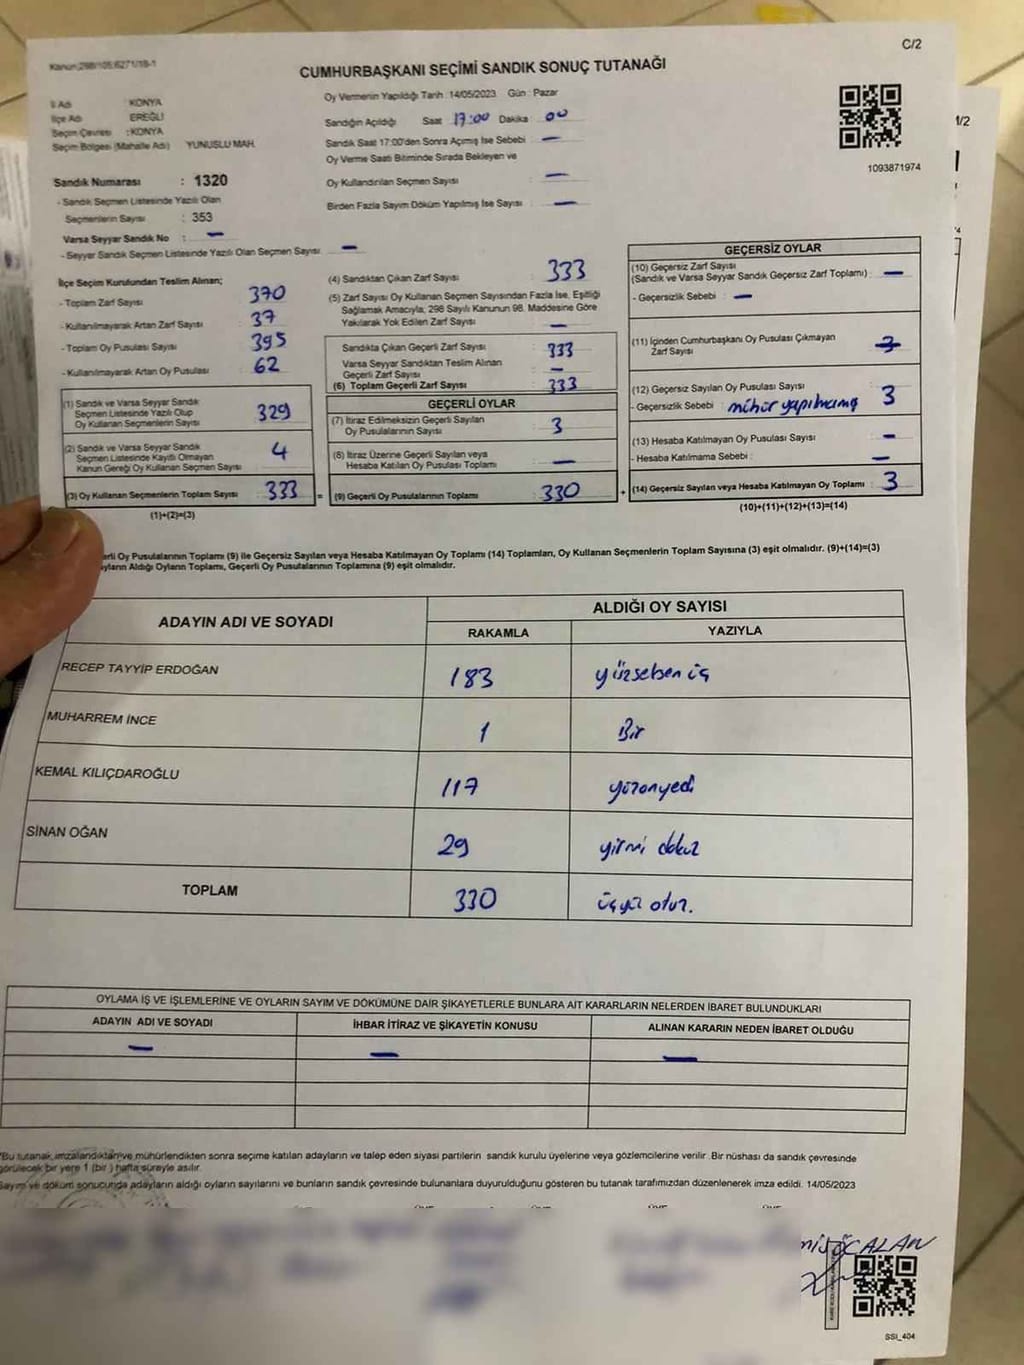 C/2
Kanun:298/105;6271/18-1
CUMHURBAŞKANI SEÇİMİ SANDIK SONUÇ TUTANAĞI
İl Adı : KONYA
İlçe Adı : EREĞLİ
Seçim Çevresi : KONYA
Seçim Bölgesi (Mahalle Adı) YUNUSLU MAH.
Oy Vermenin Yapıldığı Tarih : 14/05/2023 Gün : Pazar
Sandığın Açıldığı Saat 17:00 Dakika : 00
Sandık Saat 17:00'den Sonra Açımış İse Sebebi : —
Oy Verme Saati Bitiminde Sırada Bekleyen ve
Oy Kullandırılan Seçmen Sayısı : —
Birden Fazla Sayım Döküm Yapılmış İse Sayısı : —
1093871974
M/2
Sandık Numarası : 1320
- Sandık Seçmen Listesinde Yazılı Olan
Seçmenlerin Sayısı : 353
Varsa Seyyar Sandık No : —
- Seyyar Sandık Seçmen Listesinde Yazılı Olan Seçmen Sayısı : —
İlçe Seçim Kurulundan Teslim Alınan;
- Toplam Zarf Sayısı : 370
- Kullanılmayarak Artan Zarf Sayısı : 37
- Toplam Oy Pusulası Sayısı : 395
- Kullanılmayarak Artan Oy Pusulası : 62
(1) Sandık ve Varsa Seyyar Sandık
Seçmen Listesinde Yazılı Olup
Oy Kullanan Seçmenlerin Sayısı : 329
(2) Sandık ve Varsa Seyyar Sandık
Seçmen Listesinde Kayıtlı Olmayan
Kanun Gereği Oy Kullanan Seçmen Sayısı : 4
(3) Oy Kullanan Seçmenlerin Toplam Sayısı : 333 =
(1)+(2)=(3)
(4) Sandıktan Çıkan Zarf Sayısı : 333
(5) Zarf Sayısı Oy Kullanan Seçmen Sayısından Fazla İse, Eşitliği
Sağlamak Amacıyla; 298 Sayılı Kanunun 98. Maddesine Göre
Yakılarak Yok Edilen Zarf Sayısı : —
Sandıkta Çıkan Geçerli Zarf Sayısı : 333
Varsa Seyyar Sandıktan Teslim Alınan
Geçerli Zarf Sayısı : —
(6) Toplam Geçerli Zarf Sayısı : 333
GEÇERLİ OYLAR
(7) İtiraz Edilmeksizin Geçerli Sayılan
Oy Pusulalarının Sayısı : 3
(8) İtiraz Üzerine Geçerli Sayılan veya
Hesaba Katılan Oy Pusulası Toplamı : —
(9) Geçerli Oy Pusulalarının Toplamı : 330 +
GEÇERSİZ OYLAR
(10) Geçersiz Zarf Sayısı
(Sandık ve Varsa Seyyar Sandık Geçersiz Zarf Toplamı) : —
- Geçersizlik Sebebi : —
(11) İçinden Cumhurbaşkanı Oy Pusulası Çıkmayan
Zarf Sayısı :
(12) Geçersiz Sayılan Oy Pusulası Sayısı : 3
- Geçersizlik Sebebi : mühür yapılmamış
(13) Hesaba Katılmayan Oy Pusulası Sayısı : —
- Hesaba Katılmama Sebebi : —
(14) Geçersiz Sayılan veya Hesaba Katılmayan Oy Toplamı : 3
(10)+(11)+(12)+(13)=(14)
Oy Pusulalarının Toplamı (9) ile Geçersiz Sayılan veya Hesaba Katılmayan Oy Toplamı (14) Toplamları, Oy Kullanan Seçmenlerin Toplam Sayısına (3) eşit olmalıdır. (9)+(14)=(3)
Aldığı Oyların Toplamı, Geçerli Oy Pusulalarının Toplamına (9) eşit olmalıdır.
ADAYIN ADI VE SOYADI
ALDIĞI OY SAYISI
RAKAMLA YAZIYLA
RECEP TAYYİP ERDOĞAN 183 yüzseksen üç
MUHARREM İNCE 1 Bir
KEMAL KILIÇDAROĞLU 117 yüzonyedi
SİNAN OĞAN 29 yirmi dokuz
TOPLAM 330 üçyüz otuz.
OYLAMA İŞ VE İŞLEMLERİNE VE OYLARIN SAYIM VE DÖKÜMÜNE DAİR ŞİKAYETLERLE BUNLARA AİT KARARLARIN NELERDEN İBARET BULUNDUKLARI
ADAYIN ADI VE SOYADI İHBAR İTİRAZ VE ŞİKAYETİN KONUSU ALINAN KARARIN NEDEN İBARET OLDUĞU
— — —
Bu tutanak imzalandıktan ve mühürlendikten sonra seçime katılan adayların ve talep eden siyasi partilerin sandık kurulu üyelerine veya gözlemcilerine verilir. Bir nüshası da sandık çevresinde
görülecek bir yere 1 (bir) hafta süreyle asılır.
Sayım ve döküm sonucunda adayların aldığı oyların sayılarını ve bunların sandık çevresinde bulunanlara duyurulduğunu gösteren bu tutanak tarafımızdan düzenlenerek imza edildi. 14/05/2023
ÖCALAN
SSI_404